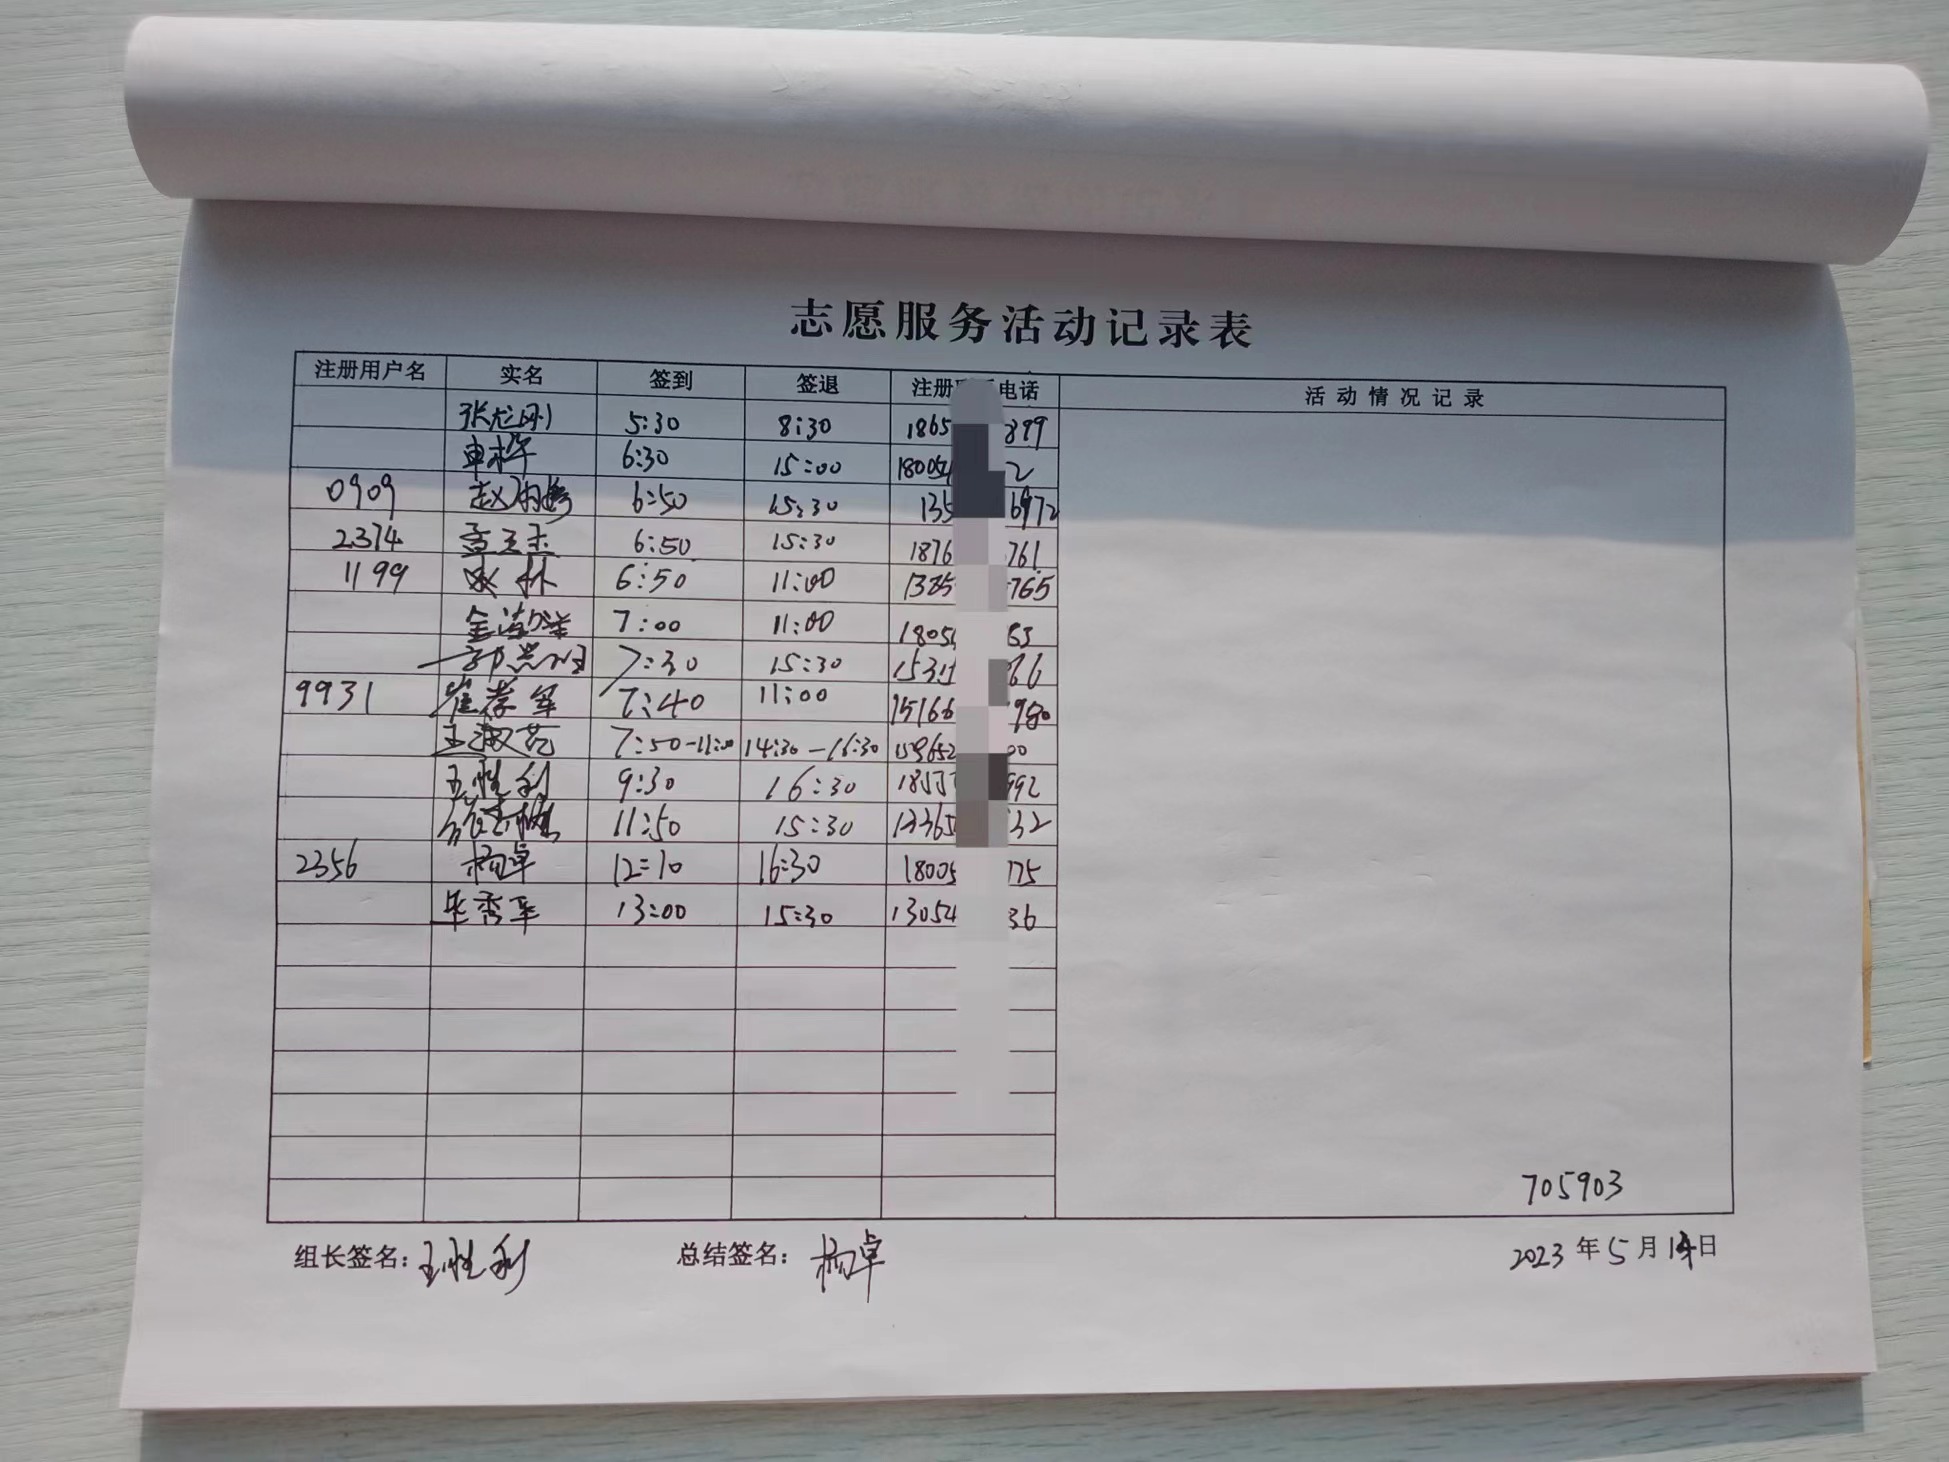 志愿服务活动记录表
注册用户名 实名 签到 签退 注册 电话 活动情况记录
5:30 8:30 1865 899
6:30 15:00 18054 2
0909 6:50 15:30 135 6972
2374 孟玉 6:50 15:30 1876 761
1199 6:50 11:00 1385 765
7:00 11:00 1805 63
7:30 15:30 1531 66
9931 崔孝军 7:40 11:00 15166 980
王淑花 7:50-11:00 14:30-16:30 159652 00
王胜利 9:30 16:30 992
11:50 15:30 13365 32
2356 杨卓 12:10 16:30 18005 775
毕秀军 13:00 15:30 13054 36
705903
组长签名:王胜利 总结签名:杨卓 2023年5月14日